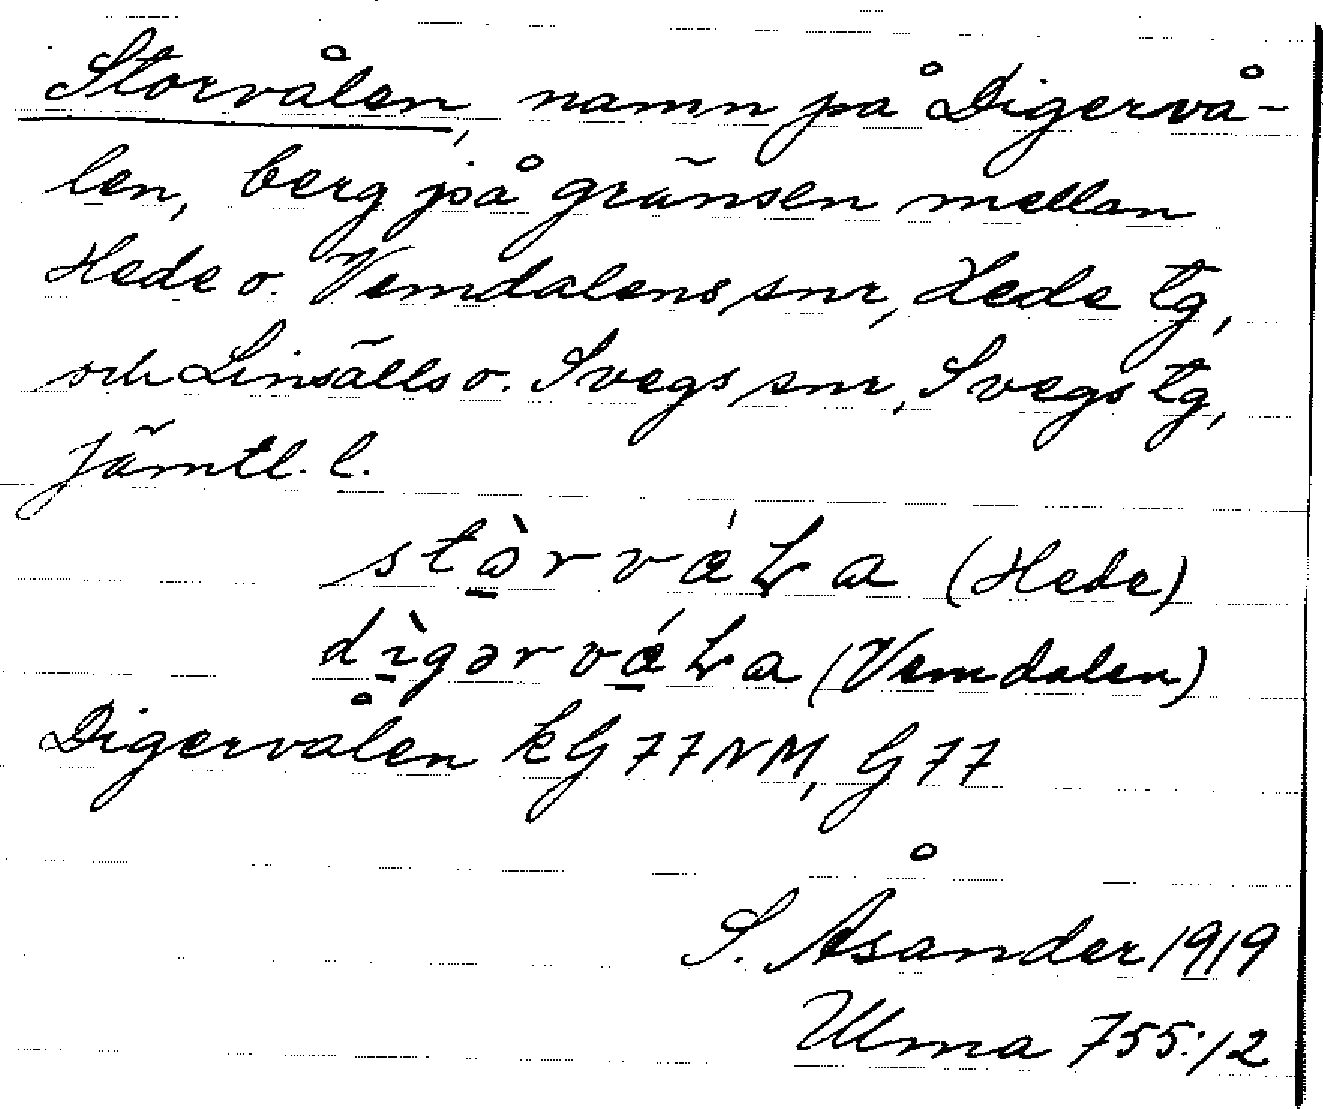 Storvålen, namn på Digervå-
len, berg på gränsen mellan
Hede o. Vemdalens snr, Hede tg,
och Linsälls o. Svegs snr, Svegs tg,
Jämtl. l.
stòrvǻLa (Hede)
dìgərvǻLa (Vemdalen)
Digervålen kG77NM, G77
S. Åsander 1919
Ulma 755:12